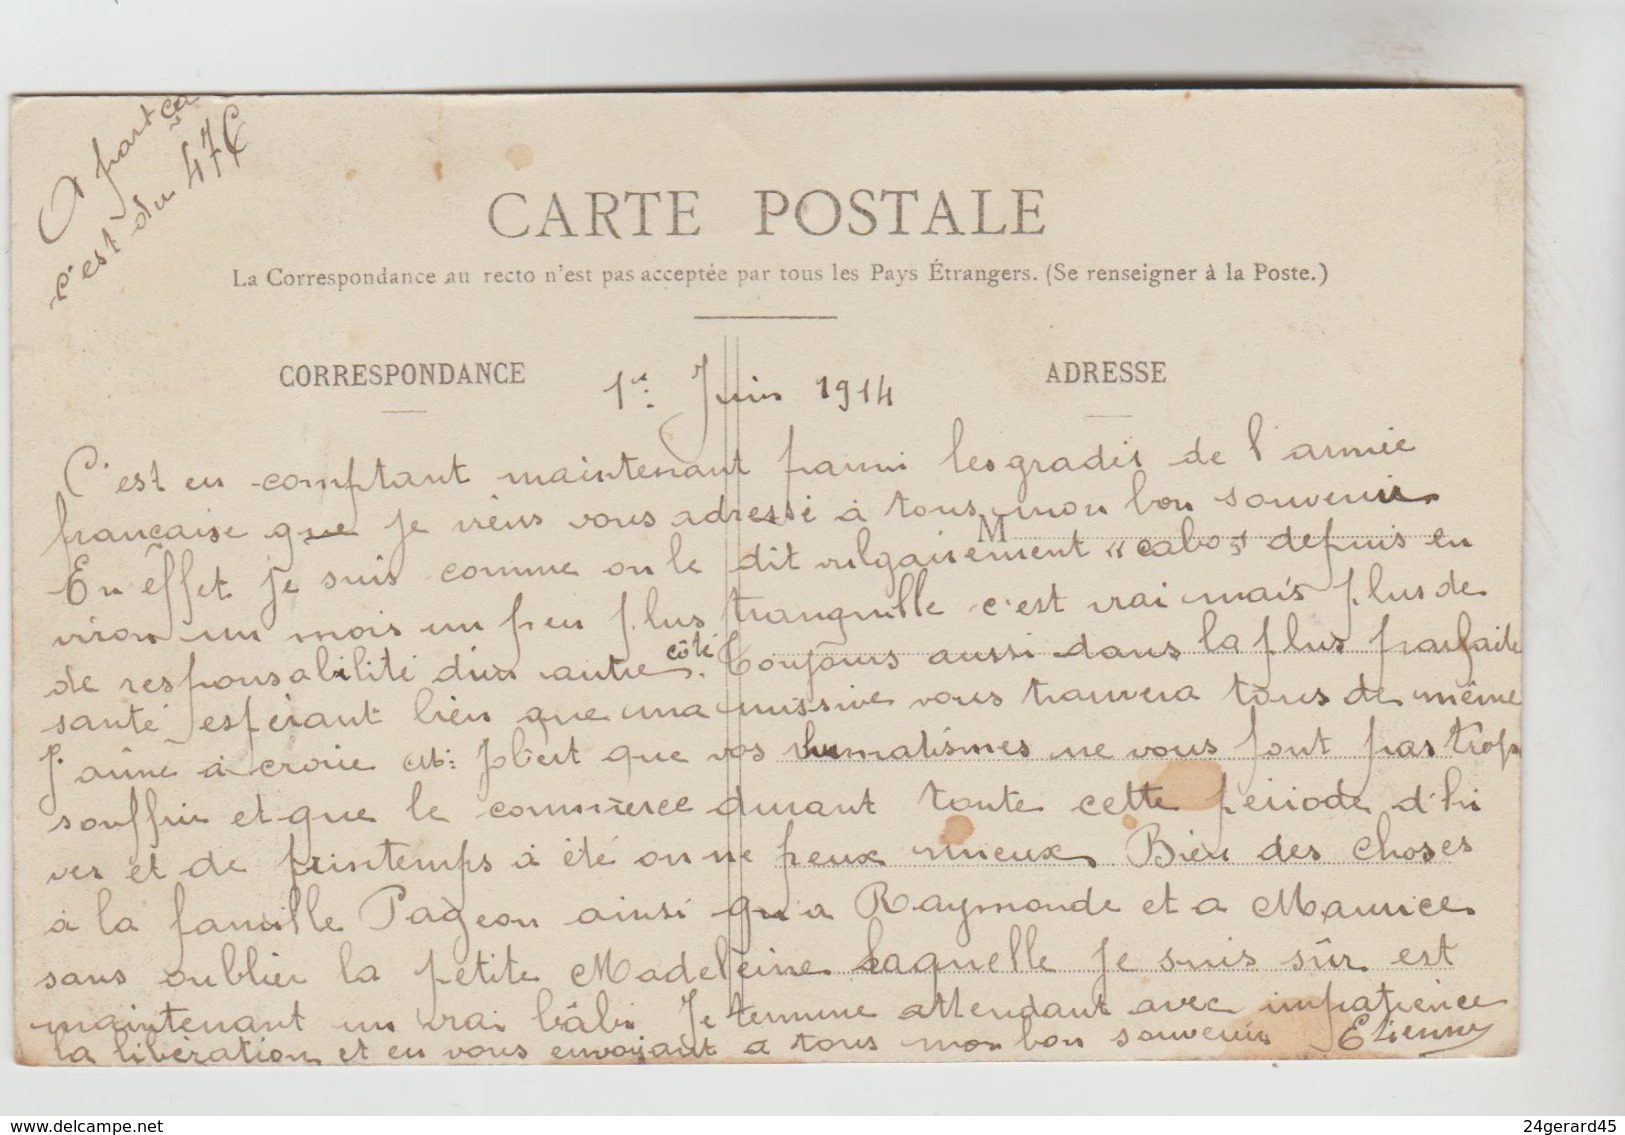 A part ça
c'est du 47
CARTE POSTALE
La Correspondance au recto n'est pas acceptée par tous les Pays Étrangers. (Se renseigner à la Poste.)
CORRESPONDANCE
ADRESSE
1er Juin 1914
C'est en comptant maintenant parmi les gradés de l'armée
française que je viens vous adressé à tous mon bon souvenir
M
En effet je suis comme on le dit vulgairement "cabo" depuis en
viron un mois un peu plus tranquille c'est vrai mais plus de
de responsabilité d'un autre côté. Toujours aussi dans la plus parfaite
santé espérant bien que ma missive vous trouvera tous de même
J'aime à croire Jobert que vos rhumatismes ne vous font pas trop
souffrir et que le commerce durant toute cette période d'hi
ver et de printemps à été on ne peux mieux Bien des choses
à la famille Pageon ainsi qu'a Raymonde et a Maurice
sans oublier la petite Madeleine laquelle je suis sûr est
maintenant un vrai bâbi. Je termine attendant avec impatience
la libération et en vous envoyant a tous mon bon souvenir Etienne
www.delcampe.net
24gerard45